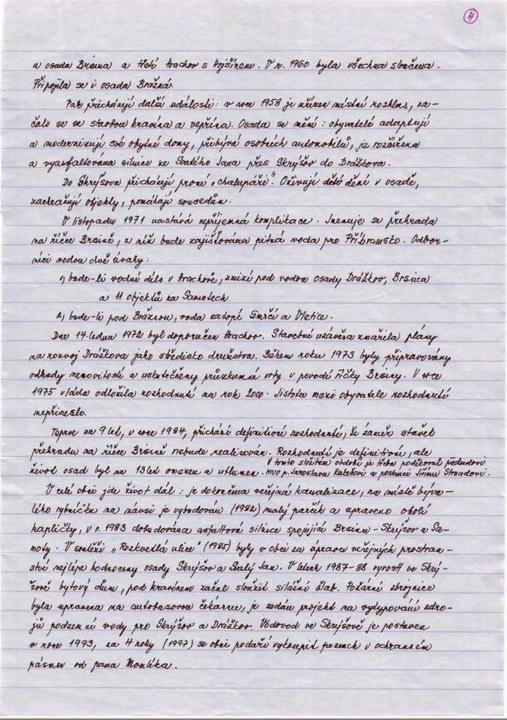 4
a osada Brsina a Hrkí Hrachov s Vojšínem. V r. 1960 byla všechna sloučena.
Připojila se i osada Bražná.
Pak přicházejí další události: v roce 1958 je zřízen místní rozhlas, za-
čalo se se stavbou kravína a vepřína. Osada se mění: obyvatelé adaptují
a modernizují své obytné domy, přibývá osobních automobilů, je rozšířena
a vyasfaltována silnice ze Svatého Jana přes Skrýšov do Drážkova.
Do Skrýšova přicházejí první „chalupáři". Oživují dětí dění v osadě,
zachraňují objekty, pomáhají sousedům.
V listopadu 1971 nastává nepříjemná komplikace. Jmenuje se přehrada
na říčce Brsině, z níž bude zajišťována pitná voda pro Příbramsko. Odbor-
níci vedou dvě úvahy:
1) bude-li vodní dílo v Hrachově, zmizí pod vodou osady Drážkov, Brsina
a 11 objektů na Samotech
2) bude-li pod Brážnou, voda zatopí Smrčí a Uletice.
Dne 14. ledna 1972 byl doporučen Hrachov. Stavební uzávěra zmařila plány
na rozvoj Drážkova jako střediska družstva. Během roku 1973 byly připravovány
odhady nemovitostí a uskutečněny průzkumné vrty v povodí říčky Brsiny. V roce
1975 vláda odložila rozhodnutí na rok 2000. Jistotu mezi obyvatele rozhodnutí
nepřineslo.
Teprve za 9 let, v roce 1984, přichází definitivní rozhodnutí, že záměr stavět
přehradu na říčce Brsině nebude realizován. Rozhodnutí je definitivní, ale
život osad byl na 13 let omezen a utlumen. V tomto složitém období je třeba poděkovat předsedovi
MNV p. Jaroslavu a postavě Jiřímu Stradovi.
V celé obci jde život dál: je dokončena veřejná kanalizace, na místě býva-
lého rybníčku na návsi je vybudován (1982) malý parčík a upraveno okolí
kapličky, v r. 1983 dobudována asfaltová silnice spojující Brsinu - Skrýšov a Sa-
moty. V soutěži „Rozkvetlá ulice" (1985) byly v obci za úpravu veřejných prostran-
ství nejlépe hodnoceny osady Skrýšov a Svatý Jan. V letech 1987-88 vyrostl ve Skrý-
šově bytový dům, pod kravínem začal sloužit silážní žlab. Požární zbrojnice
byla upravena na autobusovou čekárnu, je zadán projekt na vydypování zdro-
jů podzemní vody pro Skrýšov a Drážkov. Vodovod ve Skrýšově je postaven
v roce 1993, za 4 roky (1997) se obci podaří vykoupit pozemek v ochranném
pásmu od pana